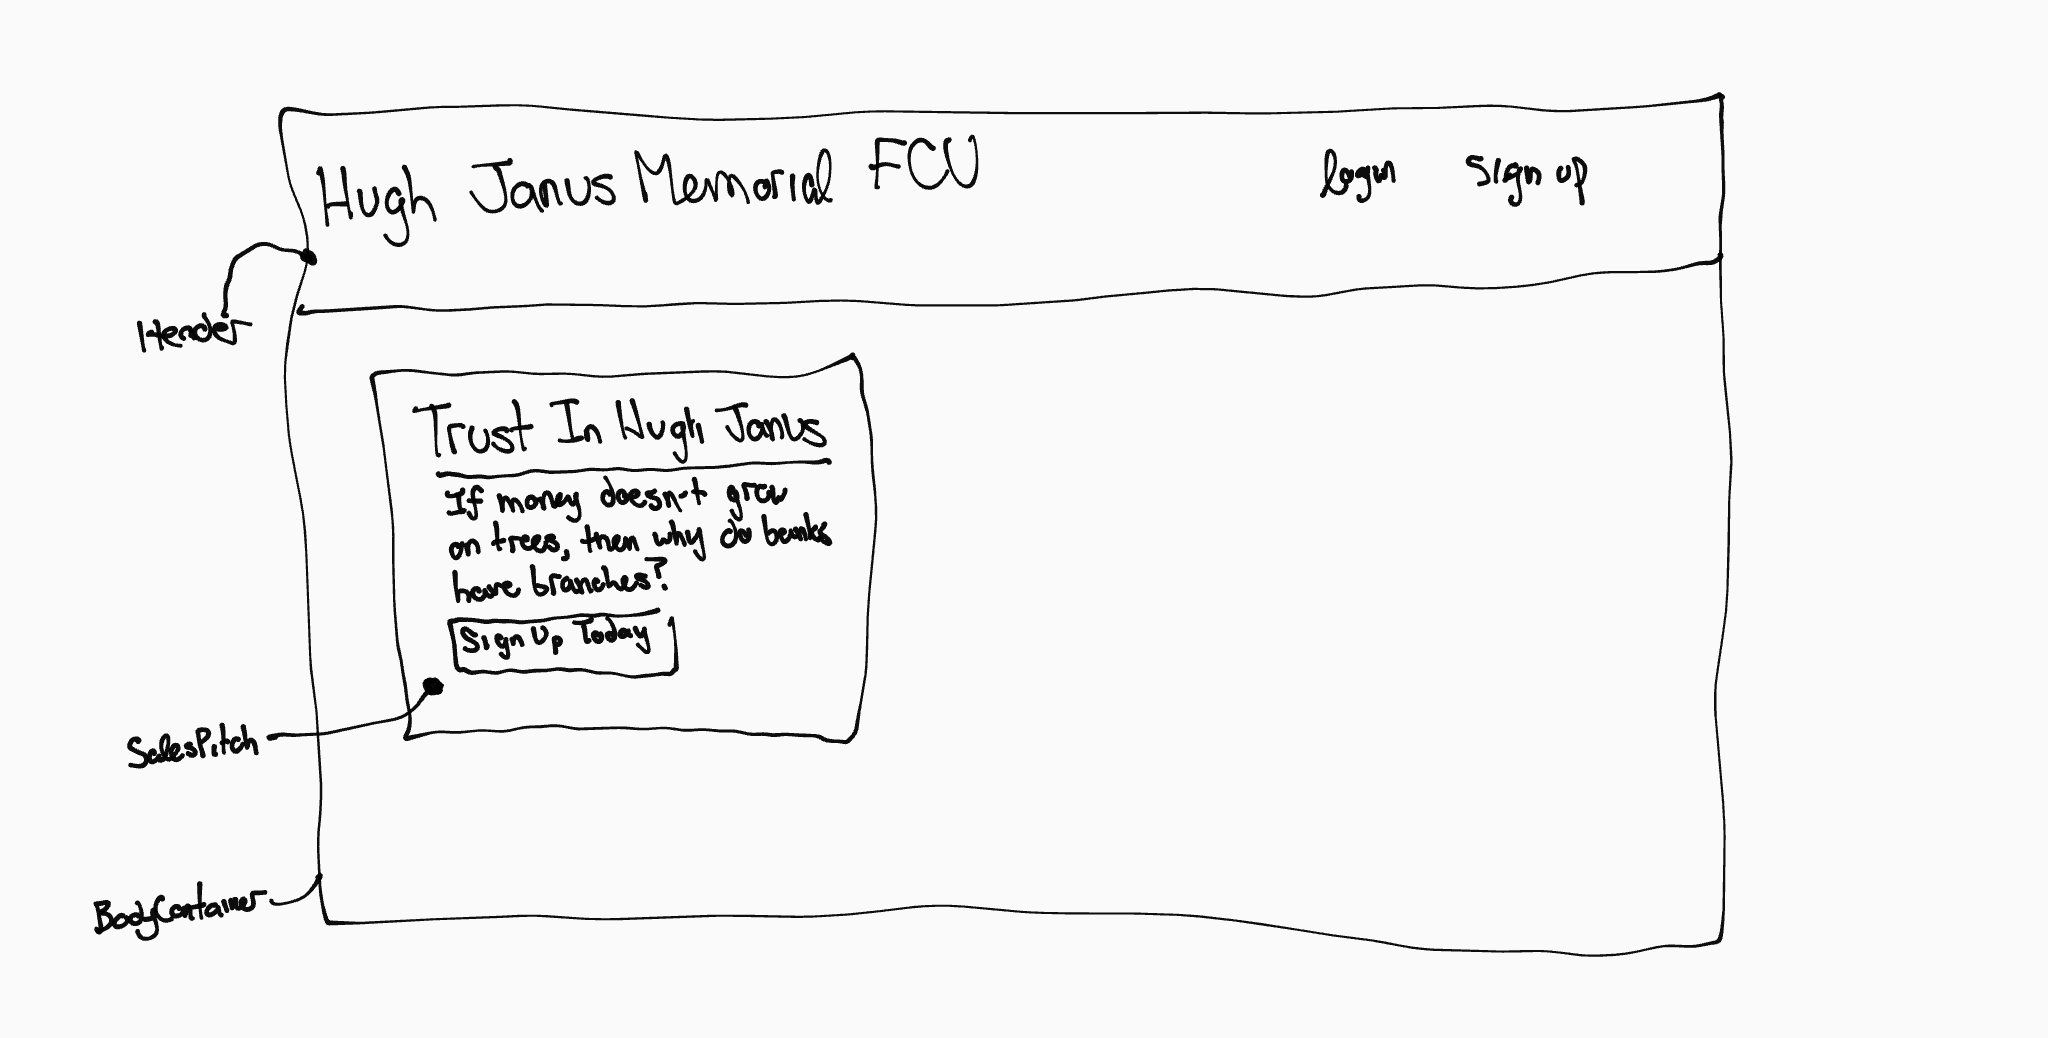 Hugh Janus Memorial FCU
login
Sign up
Header
Trust In Hugh Janus
If money doesn't grow
on trees, then why do banks
have branches?
Sign Up Today
SalesPitch
BodyContainer